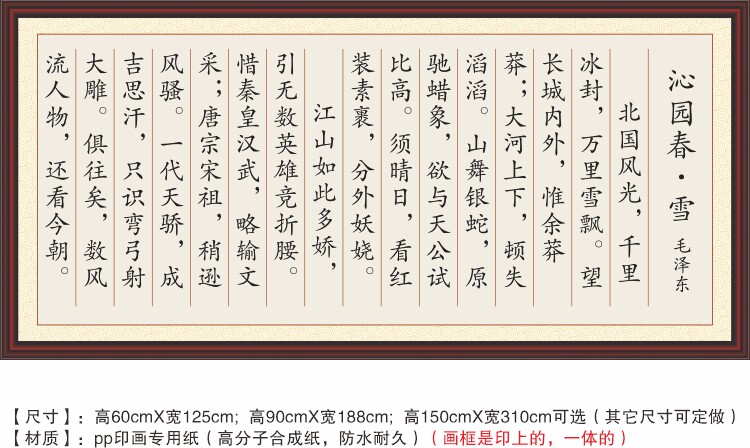 沁园春·雪 毛泽东
北国风光，千里
冰封，万里雪飘。望
长城内外，惟余莽
莽；大河上下，顿失
滔滔。山舞银蛇，原
驰蜡象，欲与天公试
比高。须晴日，看红
装素裹，分外妖娆。
江山如此多娇，
引无数英雄竞折腰。
惜秦皇汉武，略输文
采；唐宗宋祖，稍逊
风骚。一代天骄，成
吉思汗，只识弯弓射
大雕。俱往矣，数风
流人物，还看今朝。
【尺寸】：高60cmX宽125cm; 高90cmX宽188cm; 高150cmX宽310cm可选（其它尺寸可定做）
【材质】：pp印画专用纸（高分子合成纸，防水耐久）（画框是印上的，一体的）